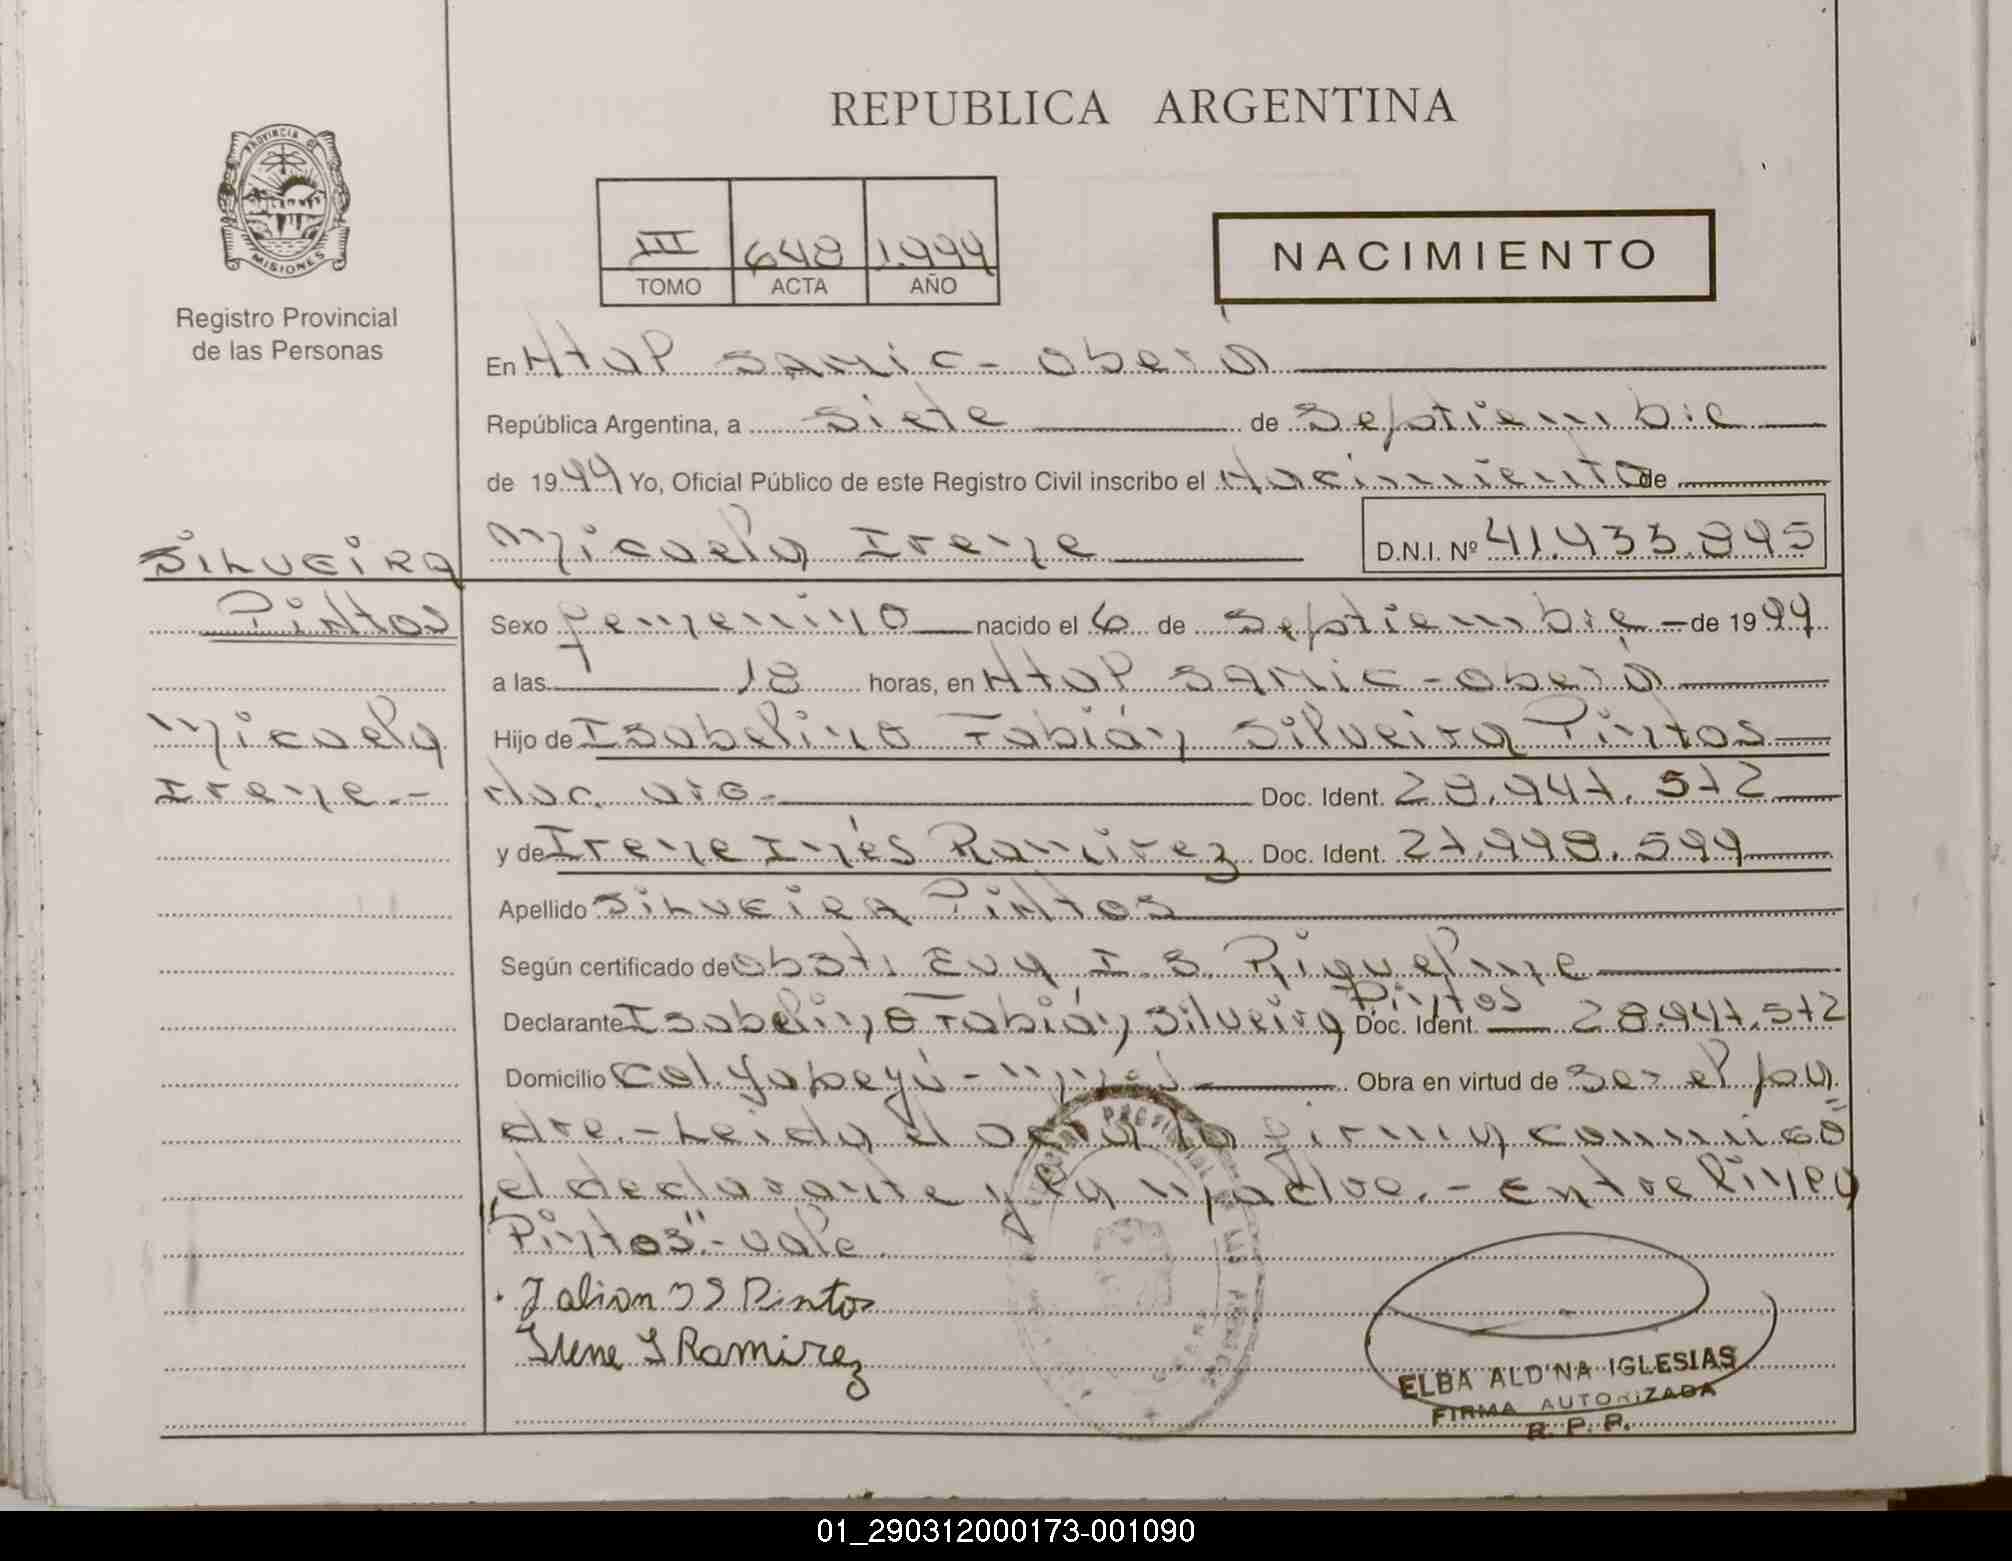 REPUBLICA ARGENTINA
PROVINCIA DE
MISIONES
Registro Provincial
de las Personas
III 648 1.999
TOMO ACTA AÑO
NACIMIENTO
En Htal SAMIC - Oberá
República Argentina, a siete de Septiembre
de 1999 Yo, Oficial Público de este Registro Civil inscribo el Nacimiento de
Micaela Irene D.N.I. Nº 41.933.895
SILVEIRA
Pintos
Micaela
Irene.-
Sexo femenino nacido el 6 de Septiembre - de 1999
a las 18 horas, en Htal SAMIC - Oberá
Hijo de Isabelino Fabián Silveira Pintos
Nac. arg.- Doc. Ident. 28.947.572
y de Irene Inés Ramirez Doc. Ident. 27.998.599
Apellido SILVEIRA Pintos
Según certificado de Obst. Eva I. S. Riquelme
Declarante Isabelino Fabián Silveira Pintos Doc. Ident. 28.947.572
Domicilio Col. Yapeyú - Mnes Obra en virtud de ser el pa
dre.- Leida el acta la firman comunicó
el declarante y la madre.- Entrelinea
"Pintos".- vale
Fabian I S Pintos
Irene I Ramirez
ELBA ALDINA IGLESIAS
FIRMA AUTORIZADA
R. P. P.
01_290312000173-001090